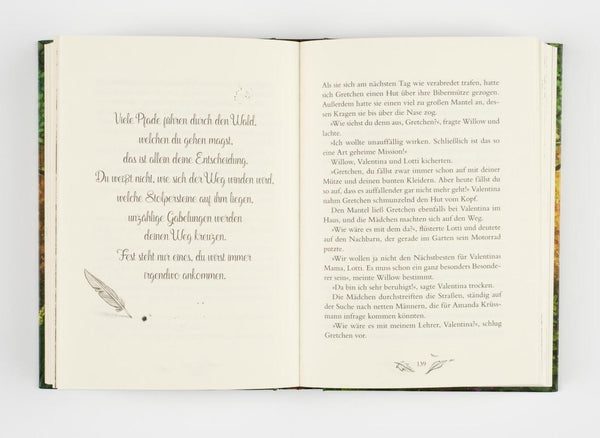 Viele Pfade führen durch den Wald,
welchen du gehen magst,
das ist allein deine Entscheidung.
Du weißt nicht, wie sich der Weg winden wird,
welche Stolpersteine auf ihm liegen,
unzählige Gabelungen werden
deinen Weg kreuzen.
Fest steht nur eines, du wirst immer
irgendwo ankommen.
Als sie sich am nächsten Tag wie verabredet trafen, hatte
sich Gretchen einen Hut über ihre Bibermütze gezogen.
Außerdem hatte sie einen viel zu großen Mantel an, des-
sen Kragen sie bis über die Nase zog.
»Wie siehst du denn aus, Gretchen?«, fragte Willow und
lachte.
»Ich wollte unauffällig wirken. Schließlich ist das so
eine Art geheime Mission!«
Willow, Valentina und Lotti kicherten.
»Gretchen, du fällst zwar immer schon auf mit deiner
Mütze und deinen bunten Kleidern. Aber heute fällst du
so auf, dass es auffallender gar nicht mehr geht!« Valentina
nahm Gretchen schmunzelnd den Hut vom Kopf.
Den Mantel ließ Gretchen ebenfalls bei Valentina im
Haus, und die Mädchen machten sich auf den Weg.
»Wie wäre es mit dem da?«, flüsterte Lotti und deutete
auf den Nachbarn, der gerade im Garten sein Motorrad
putzte.
»Wir wollen ja nicht den Nächstbesten für Valentinas
Mama, Lotti. Es muss schon ein ganz besonders Besonde-
rer sein«, meinte Willow bestimmt.
»Da bin ich sehr beruhigt!«, sagte Valentina trocken.
Die Mädchen durchstreiften die Straßen, ständig auf
der Suche nach netten Männern, die für Amanda Krüss-
mann infrage kommen könnten.
»Wie wäre es mit meinem Lehrer, Valentina?«, schlug
Gretchen vor.
139